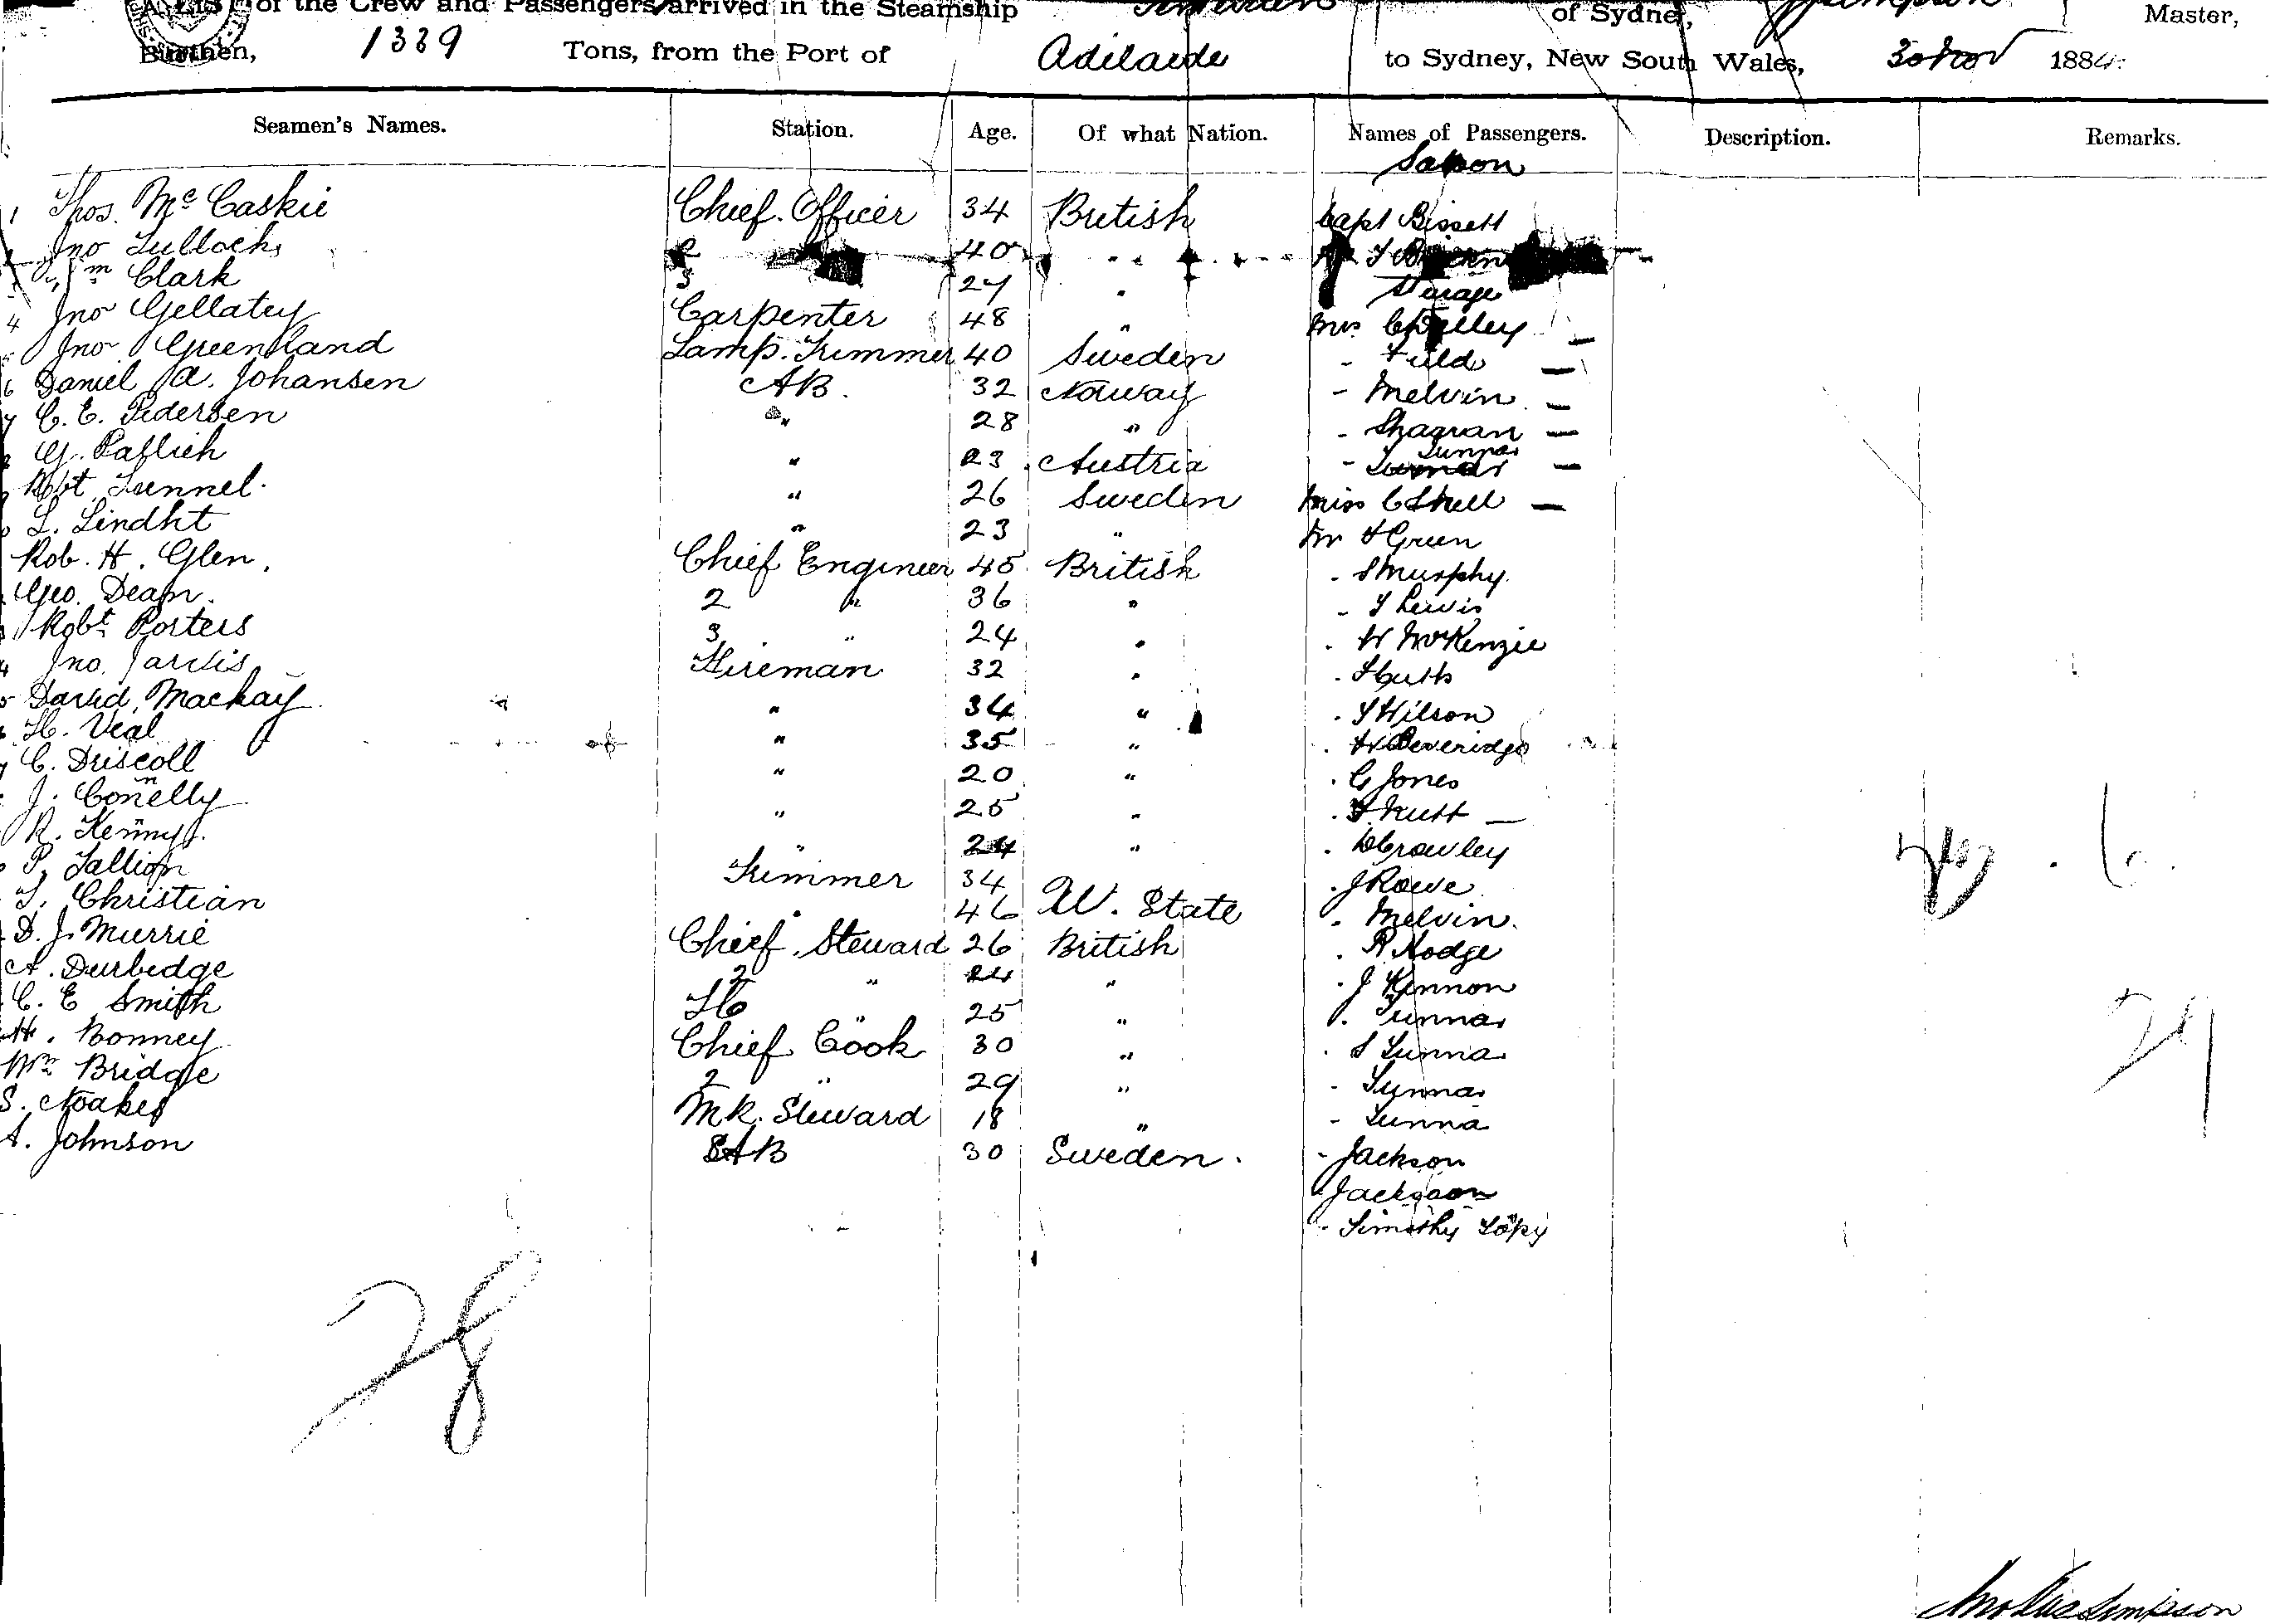 of the Crew and Passengers arrived in the Steamship of Sydney, Master,
Burthen, 1339 Tons, from the Port of Adelaide to Sydney, New South Wales, 30 Nov 1884.
Seamen's Names. Station. Age. Of what Nation. Names of Passengers. Description. Remarks.
Saloon
1 Thos. McCaskie Chief. Officer 34 British Capt Bissett
Jno Tulloch 2 " 40 "
Wm Clark 3 27 " Steerage
4 Jno Gellatey Carpenter 48 " Mrs
5 Jno Greenland Lamp. Trimmer 40 Sweden - Field —
6 Daniel A. Johansen AB. 32 Norway - Melvin —
7 C. E. Pedersen " 28 " -
G. " 23 Austria - Tunna —
Robt Tunnel. " 26 Sweden Miss —
L. Lindht " 23 " Mr Green
Rob. H. Glen. Chief Engineer 45 British . S Murphy.
Geo. Dean. 2 " 36 " - Lewis
Robt Porters 3 " 24 " . W McKenzie
Jno. Jarvis Fireman 32 "
David Mackay " 34 " . Wilson
H. Veal " 35 " . W Beveridge
C. Driscoll " 20 " . G Jones
J. Conelly " 25 " . Nutt —
R. Kenny. " 24 " . Crowley
P. Trimmer 34 . J Rowe
T. Christian " 46 U. State . Melvin.
D. J. Murrie Chief. Steward 26 British . R Hodge
A. Durbedge 2 " 24 " . J Kennon
C. E Smith " 25 " . Tunna
H. Bonney Chief Cook 30 " . S Tunna
Wm Bridge 2 " 29 " - Tunna
S. Noakes Mk. Steward 18 " - Tunna
A. Johnson AB 30 Sweden. - Jackson
- Jackson
- Timothy
29
28